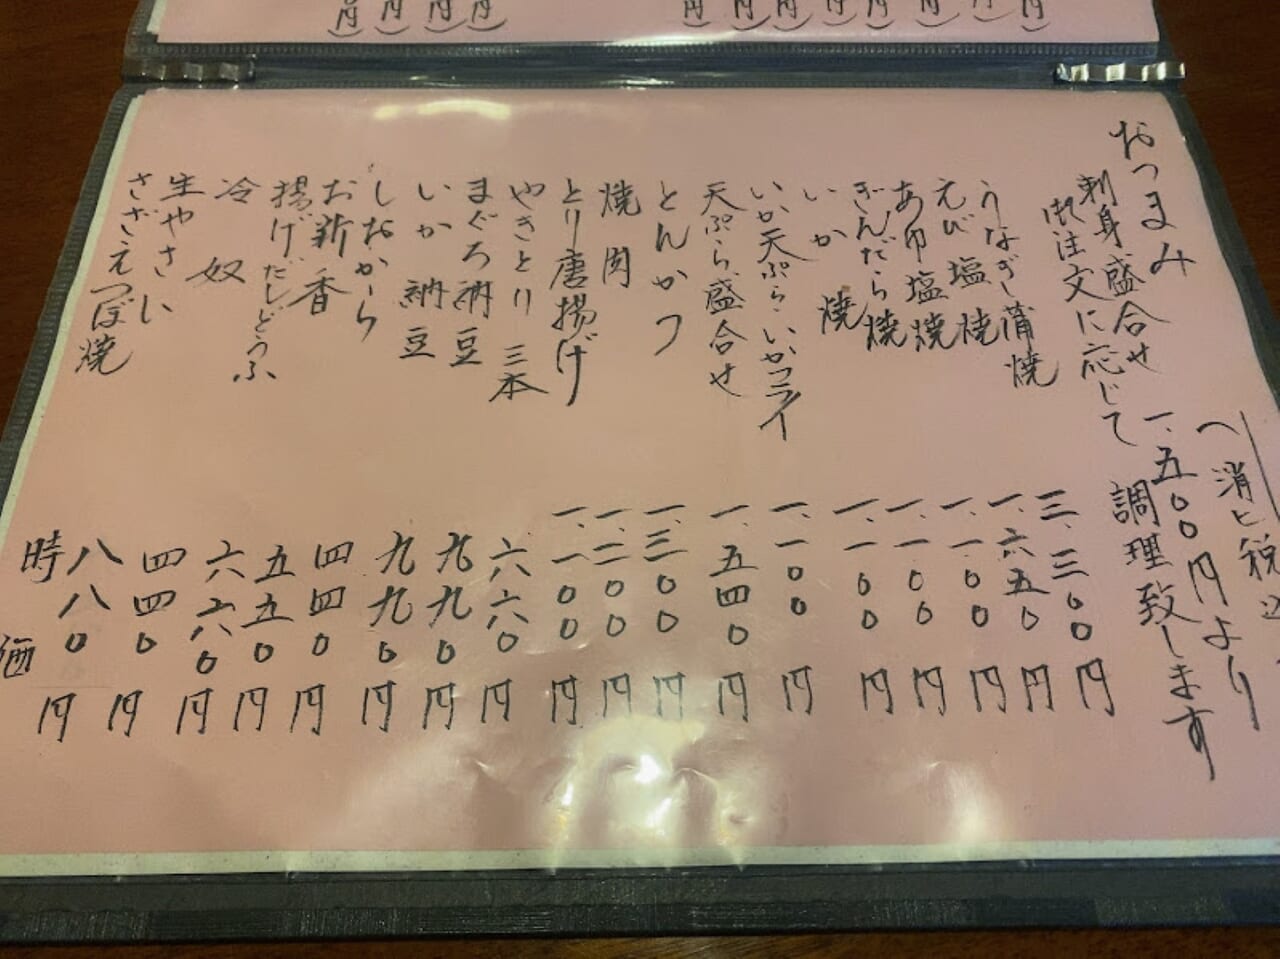 おつまみ (消ヒ税込
刺身盛合せ 一、五〇〇円より
御注文に応じて 調理致します
うなぎ蒲焼 三、三〇〇円
えび塩焼 一、六五〇円
あゆ塩焼 一、一〇〇円
ぎんだら焼 一、一〇〇円
いか焼 一、一〇〇円
いか天ぷら・いかフライ 一、一〇〇円
天ぷら盛合せ 一、五四〇円
とんかつ 一、三〇〇円
焼肉 一、二〇〇円
とり唐揚げ 一、一〇〇円
やきとり 三本 六六〇円
まぐろ納豆 九九〇円
いか納豆 九九〇円
しおから 四四〇円
お新香 五五〇円
揚げだしどうふ 六六〇円
冷奴 四四〇円
生やさい 八八〇円
さざえつぼ焼 時価